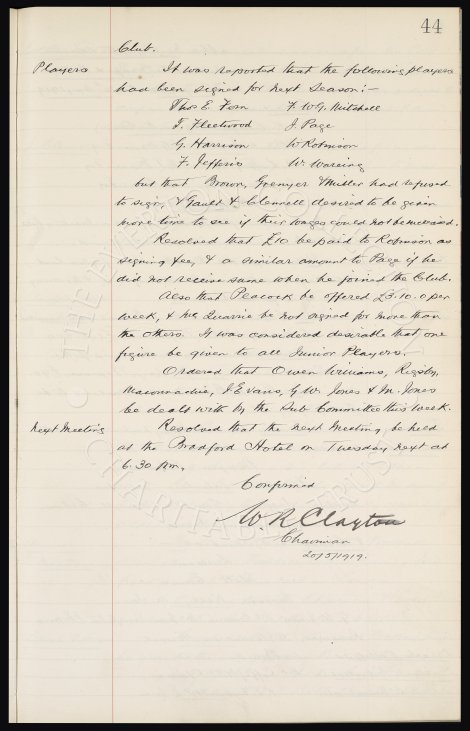 44
Club.
Players It was reported that the following players
had been signed for next Season:-
Thos E. Fern F. W.G. Mitchell
T. Fleetwood J. Page
G. Harrison W Robinson
F. Jefferis W. Wareing
but that Brown, Grenyer & Miller had refused
to sign, & Gault & Clennell desired to be given
more time to see if their wages could not be increased.
Resolved that £10 be paid to Robinson as
signing fee, & a similar amount to Page if he
did not receive same when he joined the Club.
Also that Peacock be offered £3.10.0 per
week, & Mc Quarrie be not signed for more than
the others. It was considered desirable that one
figure be given to all Junior Players.
Ordered that Owen Williams, Rigsby,
J Evans, G.W. Jones & M. Jones
be dealt with by the Sub Committee this week.
Next Meeting Resolved that the next Meeting be held
at the Bradford Hotel on Tuesday next at
6.30 pm.
Confirmed
W. R Clayton
Chairman
20/5/1919.
THE EVERTON
CHARITABLE TRUST